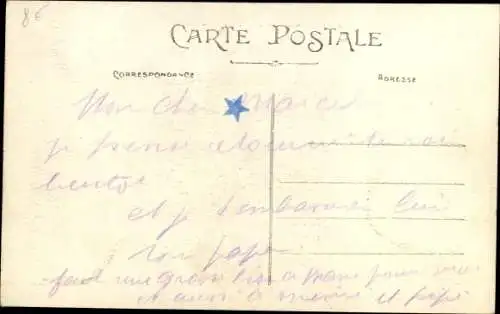 8€
CARTE POSTALE
CORRESPONDANCE
ADRESSE
Mon cher Marcel
je pense
bientot
et je t'embrasse
ton papa
fait une grosse bise a maman pour moi
et aussi a memere et pepe